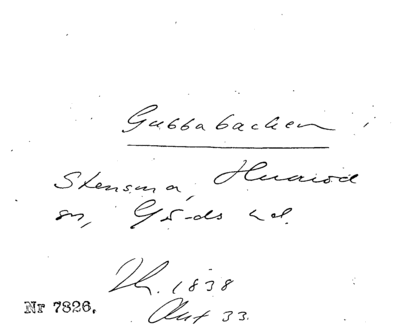 Gubbabacken
Stensma, Huaröd
sn, Gä-ds hd.
Th. 1838
Akt 33.
Nr 7826.